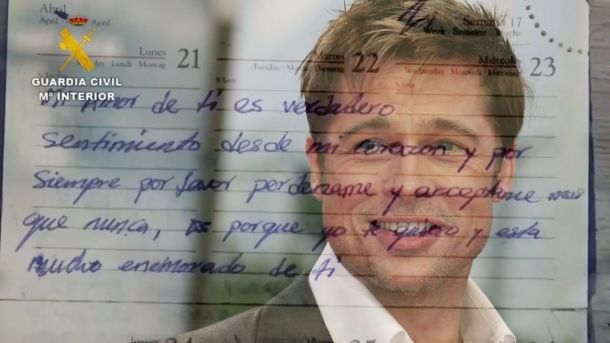 Abril
April April
Semana 17
Week Semaine Woche
Lunes 21
Lundi Montag
Martes 22
Tuesday
Miércoles 23
Wednesday
GUARDIA CIVIL
Mº INTERIOR
Amor de ti es verdadero
Sentimiento desde mi corazon y por
Siempre por favor perdename y acceptame mas
que nunca, es porque yo te quiero y esta
mucho enemorado de ti
24
25